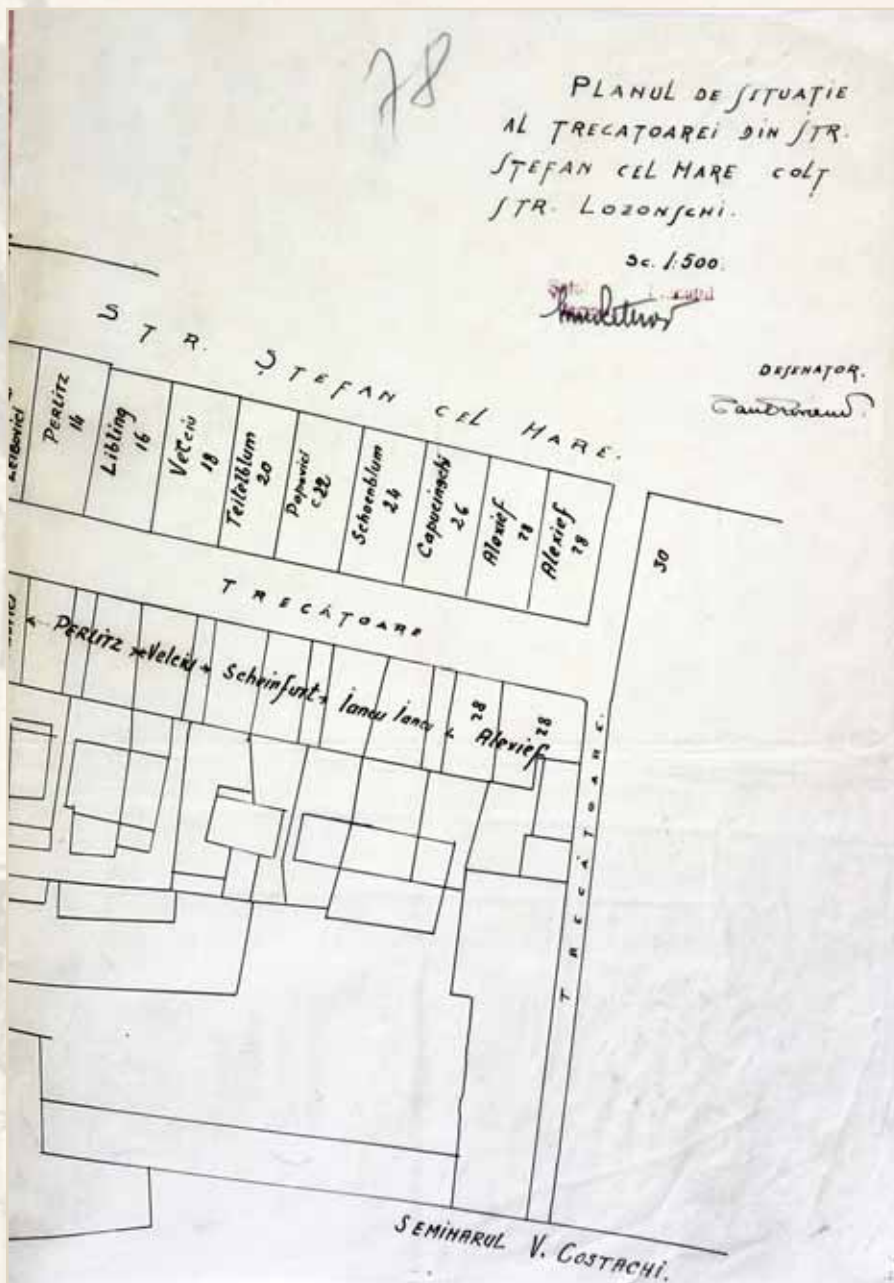 78
PLANUL DE SITUAȚIE
AL TRECATOAREI DIN STR.
ȘTEFAN CEL MARE COLȚ
STR. LOZONSCHI.
Sc. 1:500.
DESENATOR.
STR. ȘTEFAN CEL MARE.
PERLITZ
14
Libling
16
Velciu
18
Teitelblum
20
Popovici
22
Schoenblum
24
Capucinschi
26
Alexief
28
Alexief
28
30
TRECĂTOARE
PERLITZ
Velciu
Scheinfurt
Iancu Iancu
Alexief
28
28
TRECĂTOARE.
SEMINARUL V. COSTACHI.